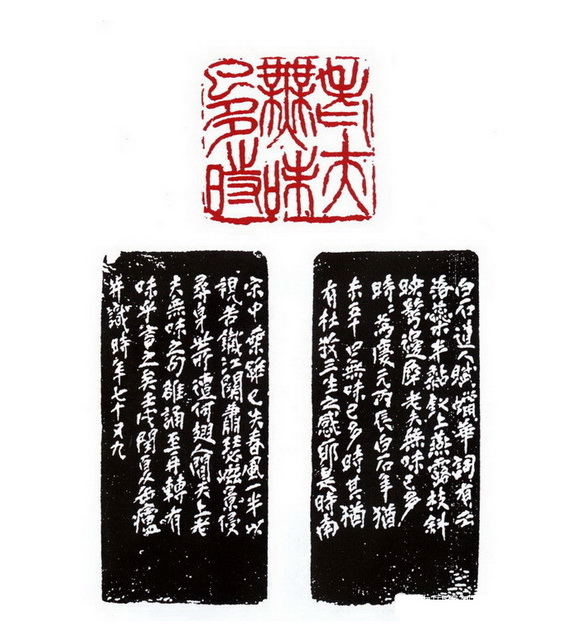 老夫
無味
已多時
白石道人賦蠟華詞有云
落蕊半黏釵上燕露枝斜
映鬢邊犀老夫無味已多
時蓋慶元丙辰白石年猶
未五十曰無味已多時其猶
有杜牧三生之感耶是時南
宋中葉雖已失春風一半以
視若江關肅瑟景侵
尋身世所遭何趐人間天上老
夫無味之句雖誦至再轉有
味乎言之矣壬戌閏夏無鑪
并識時年七十又九